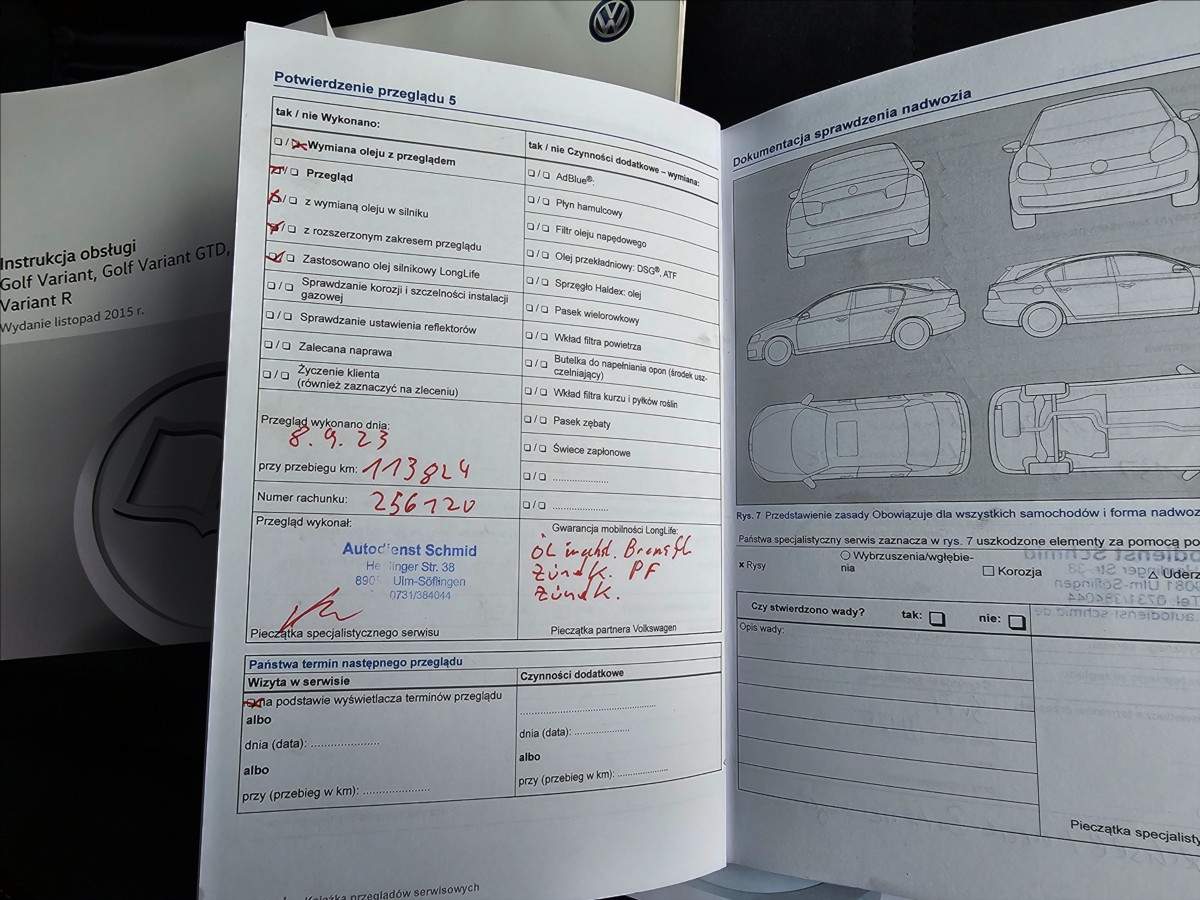 Instrukcja obsługi
Golf Variant, Golf Variant GTD,
Variant R
Wydanie listopad 2015 r.
Potwierdzenie przeglądu 5
tak / nie Wykonano:
❑ / ❑ Wymiana oleju z przeglądem
❑ / ❑ Przegląd
❑ / ❑ z wymianą oleju w silniku
❑ / ❑ z rozszerzonym zakresem przeglądu
❑ / ❑ Zastosowano olej silnikowy LongLife
❑ / ❑ Sprawdzanie korozji i szczelności instalacji
gazowej
❑ / ❑ Sprawdzanie ustawienia reflektorów
❑ / ❑ Zalecana naprawa
❑ / ❑ Życzenie klienta
(również zaznaczyć na zleceniu)
Przegląd wykonano dnia:
8. 9. 23
przy przebiegu km: 113824
Numer rachunku: 256120
Przegląd wykonał:
Autodienst Schmid
Str. 38
Ulm-Söflingen
0731/384044
Pieczątka specjalistycznego serwisu
tak / nie Czynności dodatkowe – wymiana:
❑ / ❑ AdBlue®:
❑ / ❑ Płyn hamulcowy
❑ / ❑ Filtr oleju napędowego
❑ / ❑ Olej przekładniowy: DSG®, ATF
❑ / ❑ Sprzęgło Haldex: olej
❑ / ❑ Pasek wielorowkowy
❑ / ❑ Wkład filtra powietrza
❑ / ❑ Butelka do napełniania opon (środek usz-
czelniający)
❑ / ❑ Wkład filtra kurzu i pyłków roślin
❑ / ❑ Pasek zębaty
❑ / ❑ Świece zapłonowe
❑ / ❑ ....................
❑ / ❑ ....................
Gwarancja mobilności LongLife:
PF
Pieczątka partnera Volkswagen
Państwa termin następnego przeglądu
Wizyta w serwisie
❑ na podstawie wyświetlacza terminów przeglądu
albo
dnia (data): ....................
albo
przy (przebieg w km): ....................
Czynności dodatkowe
....................
dnia (data): ....................
albo
przy (przebieg w km): ....................
Książka przeglądów serwisowych
Dokumentacja sprawdzenia nadwozia
Rys. 7 Przedstawienie zasady Obowiązuje dla wszystkich samochodów i forma nadwoz
Państwa specjalistyczny serwis zaznacza w rys. 7 uszkodzone elementy za pomocą po
× Rysy
○ Wybrzuszenia/wgłębie-
nia
☐ Korozja
△ Uderz
Czy stwierdzono wady? tak: ❑ nie: ❑
Opis wady:
Pieczątka specjalisty